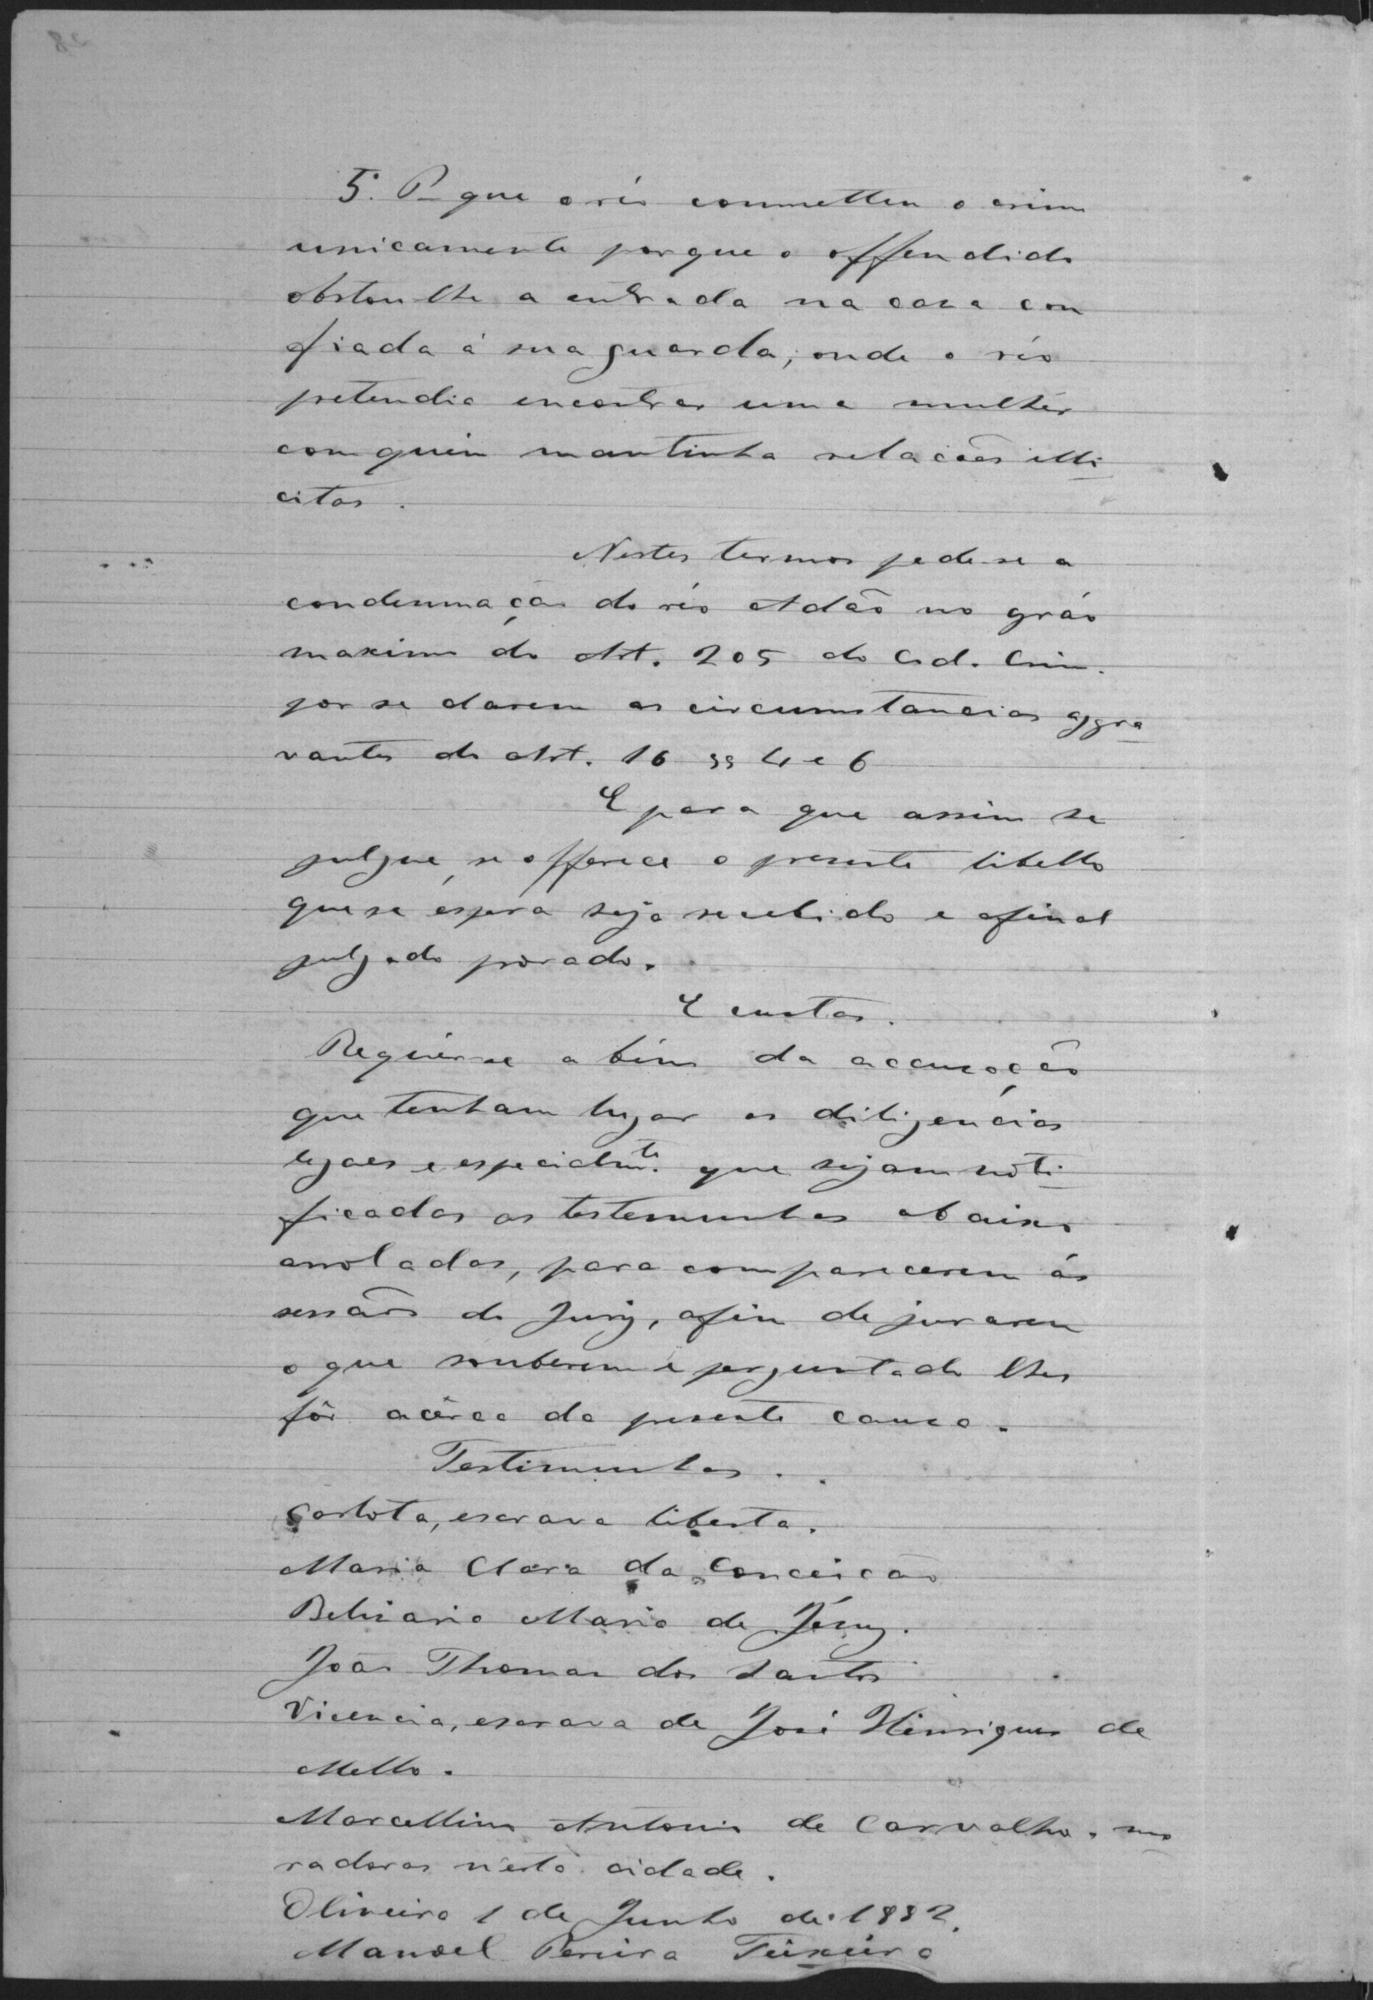 5º P. que o réo commetteu o crime
unicamente porque o offendido
obstou lhe a entrada na casa con
fiada á sua guarda, onde o réo
pretendia encontrar uma mulhér
com quem mantinha relacões illi
citas.
Nestes termos pede-se a
condemnação do réo Adão no gráo
maximo do Art. 205 do Cod. Crim.
por se darem as circumstancias aggra
vantes do Art. 16 §§ 4 e 6
E para que assim se
julgue, se offerece o presente libello
que se espera seja recebido e afinal
julgado provado.
E custas.
Requér-se a bem da accusação
que tenham lugar as diligencias
legaes e especialmte. que sejam noti
ficadas as testemunhas abaixo
arroladas, para comparecerem ás
sessões do Jury, afim de jurarem
o que souberem e perguntado lhes
fôr acêrca da presente causa.
Testimunhas.
Carlota, escrava liberta.
Maria Clara da Conceicão
Belisario Maria de Jesus.
João Thomas dos Santos
Vicencia, escrava de José Henriques de
Mello.
Marcellino Antonio de Carvalho, mo
radores nesta cidade.
Oliveira 1 de Junho de 1882.
Manoel Pereira Teixeira